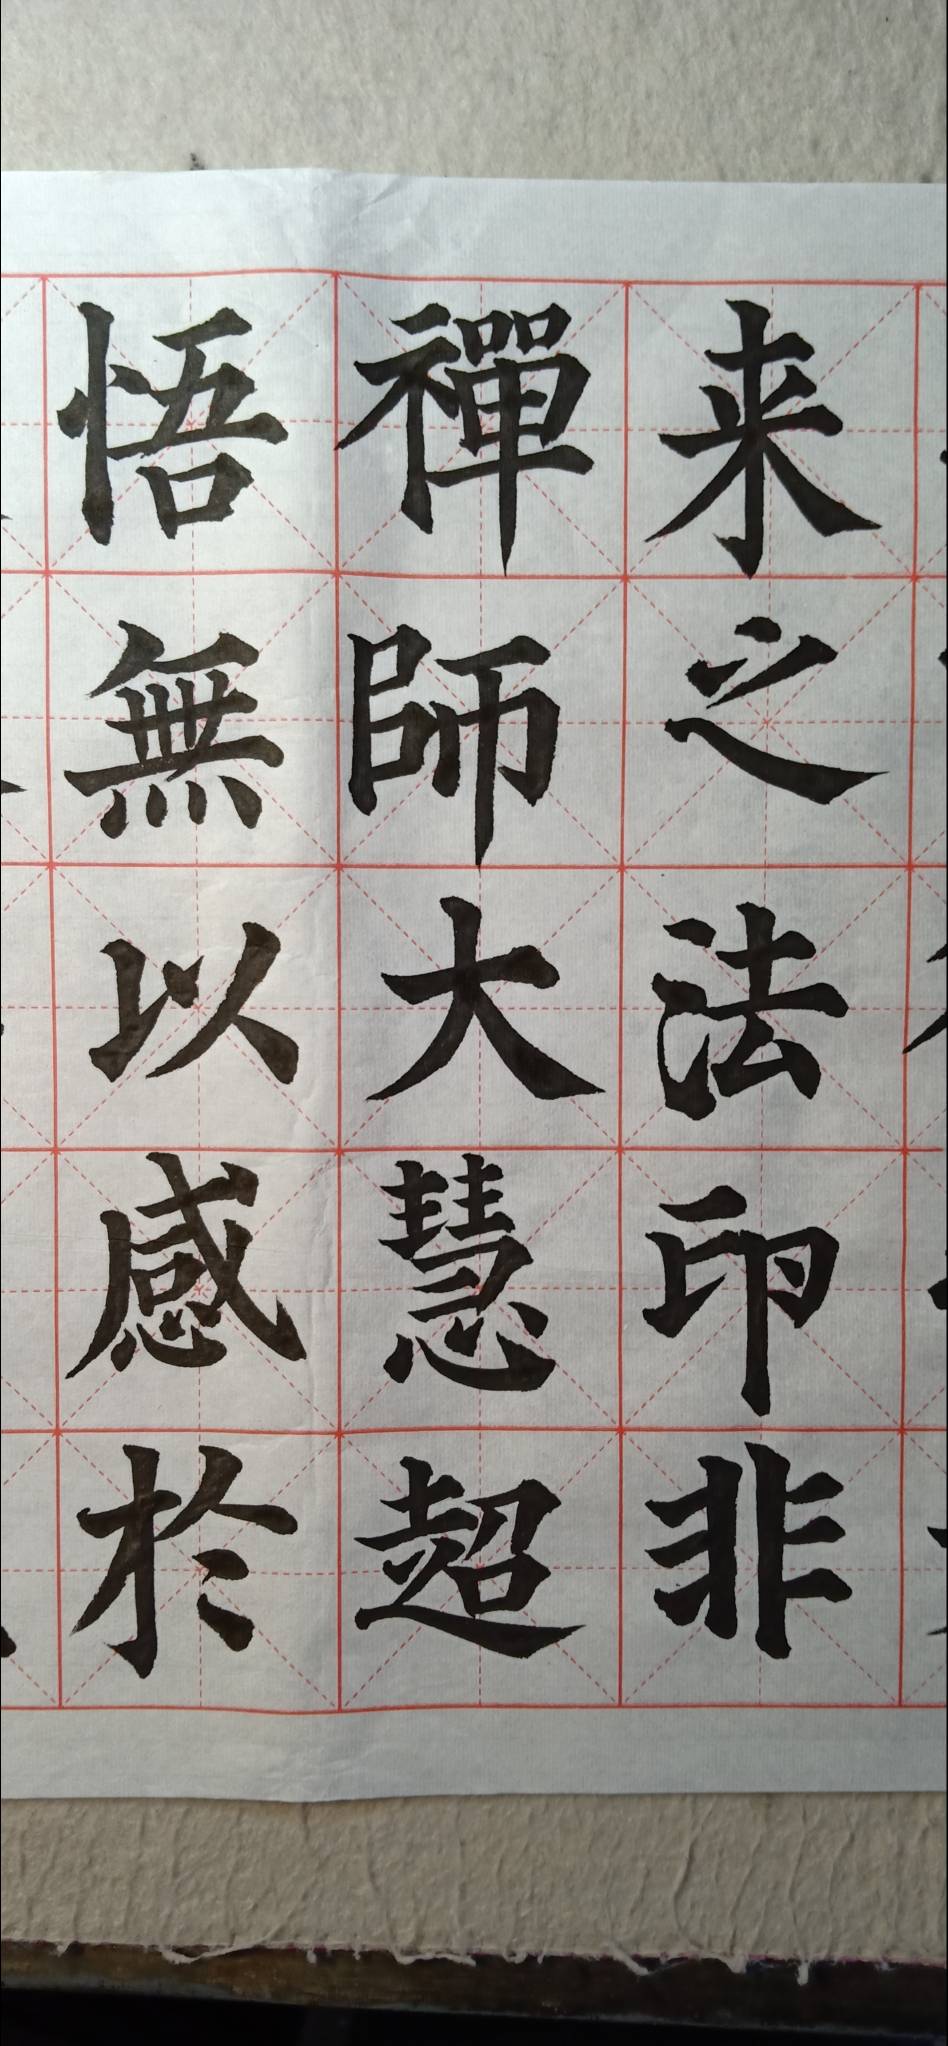 来之法印非
禪師大慧超
悟無以感於